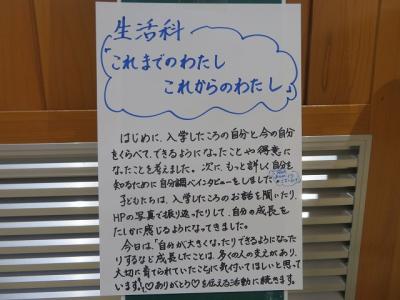 生活科
「これまでのわたし
これからのわたし」
はじめに、入学したころの自分と今の自分
をくらべて、できるようになったことや得意に
なったことを考えました。次に、もっと詳しく自分を
知るために自分調べインタビューをしました。
子どもたちは、入学したころのお話を聞いたり、
HPの写真で振り返ったりして、自分の成長を
たしかに感じるようになってきました。
今日は、「自分が大きくなったりできるようになった
りするなど成長したことは、多くの人の支えがあり、
大切に育てられていたこと」に気付いてほしいと思って
います!♡ありがとう♡を伝える活動に続きます。